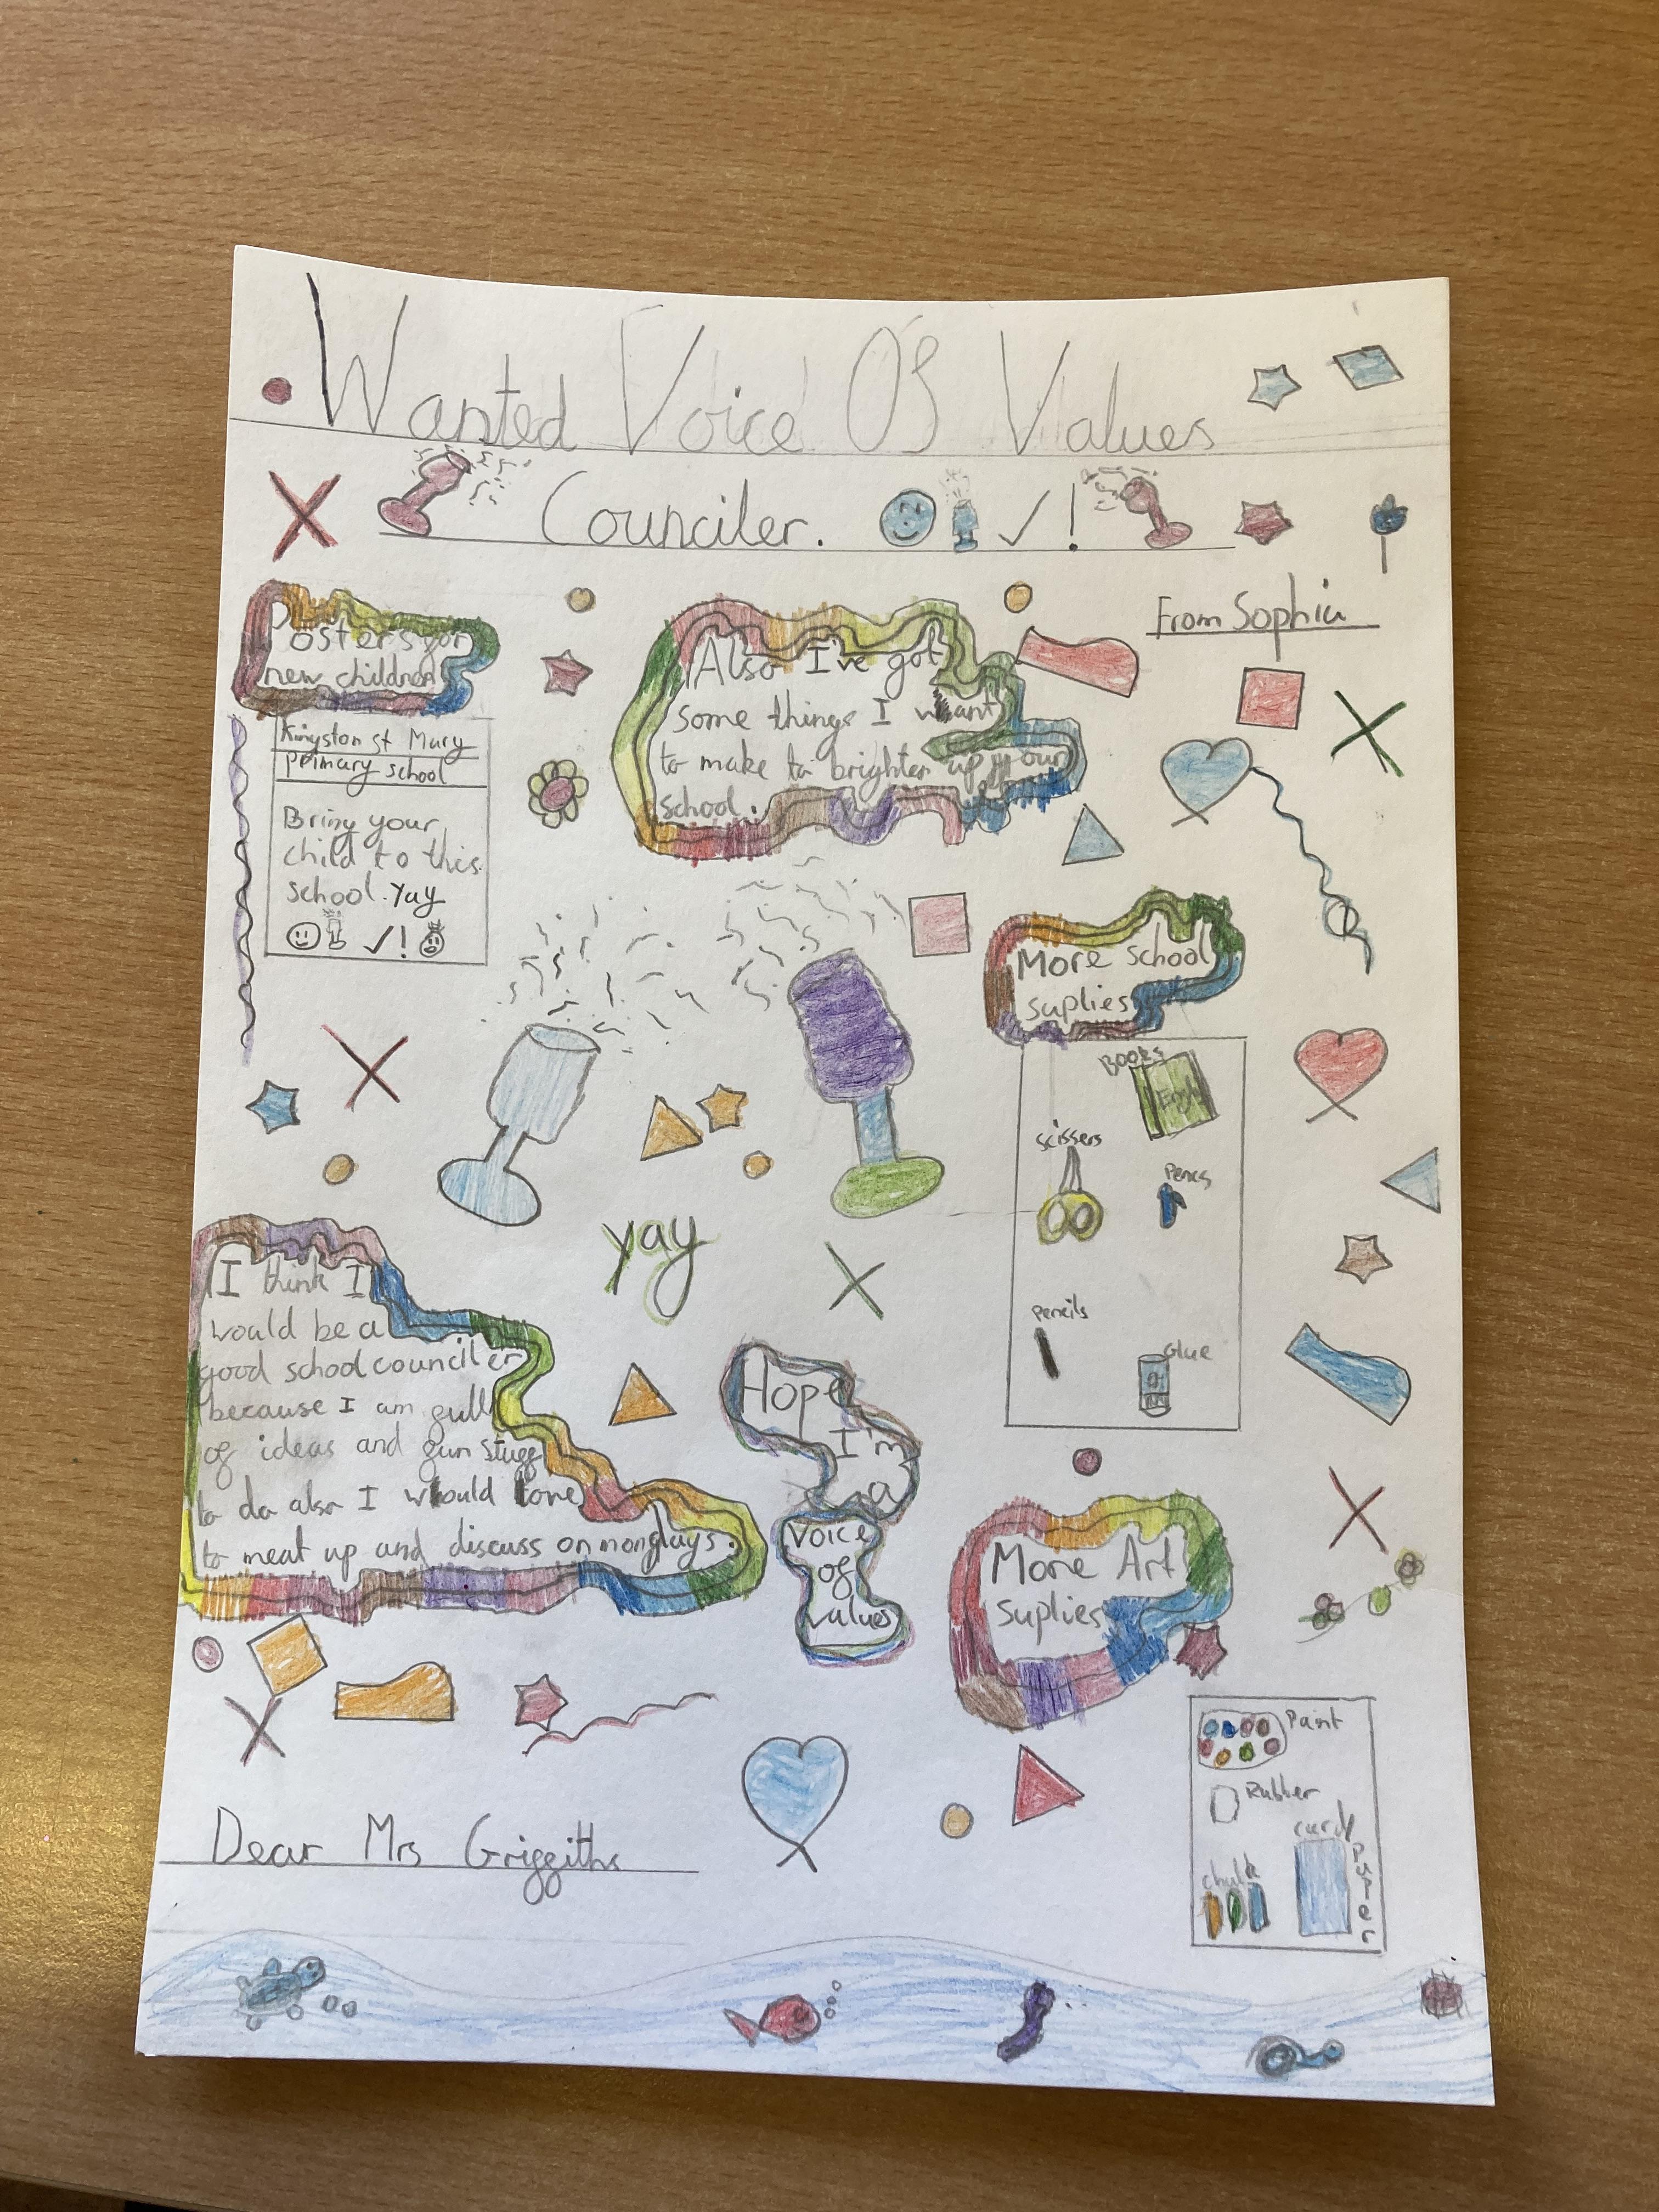 Wanted Voice Of Values
Counciler.
✓!
From Sophia
Posters for
new children
Kingston st Mary
primary school
Bring your
child to this
school. Yay
✓!
Also I've got
some things I want
to make to brighten up our
school.
More school
suplies
Books
English
scissers
Pencs
pencils
Glue
yay
I think I
would be a
good school counciler
because I am full
of ideas and fun stuff
to do also I would love
to meat up and discuss on mondays.
Hope
I'm
a
Voice
of
values
More Art
suplies
Paint
Rubber
card
paper
chalk
Dear Mrs Griffiths